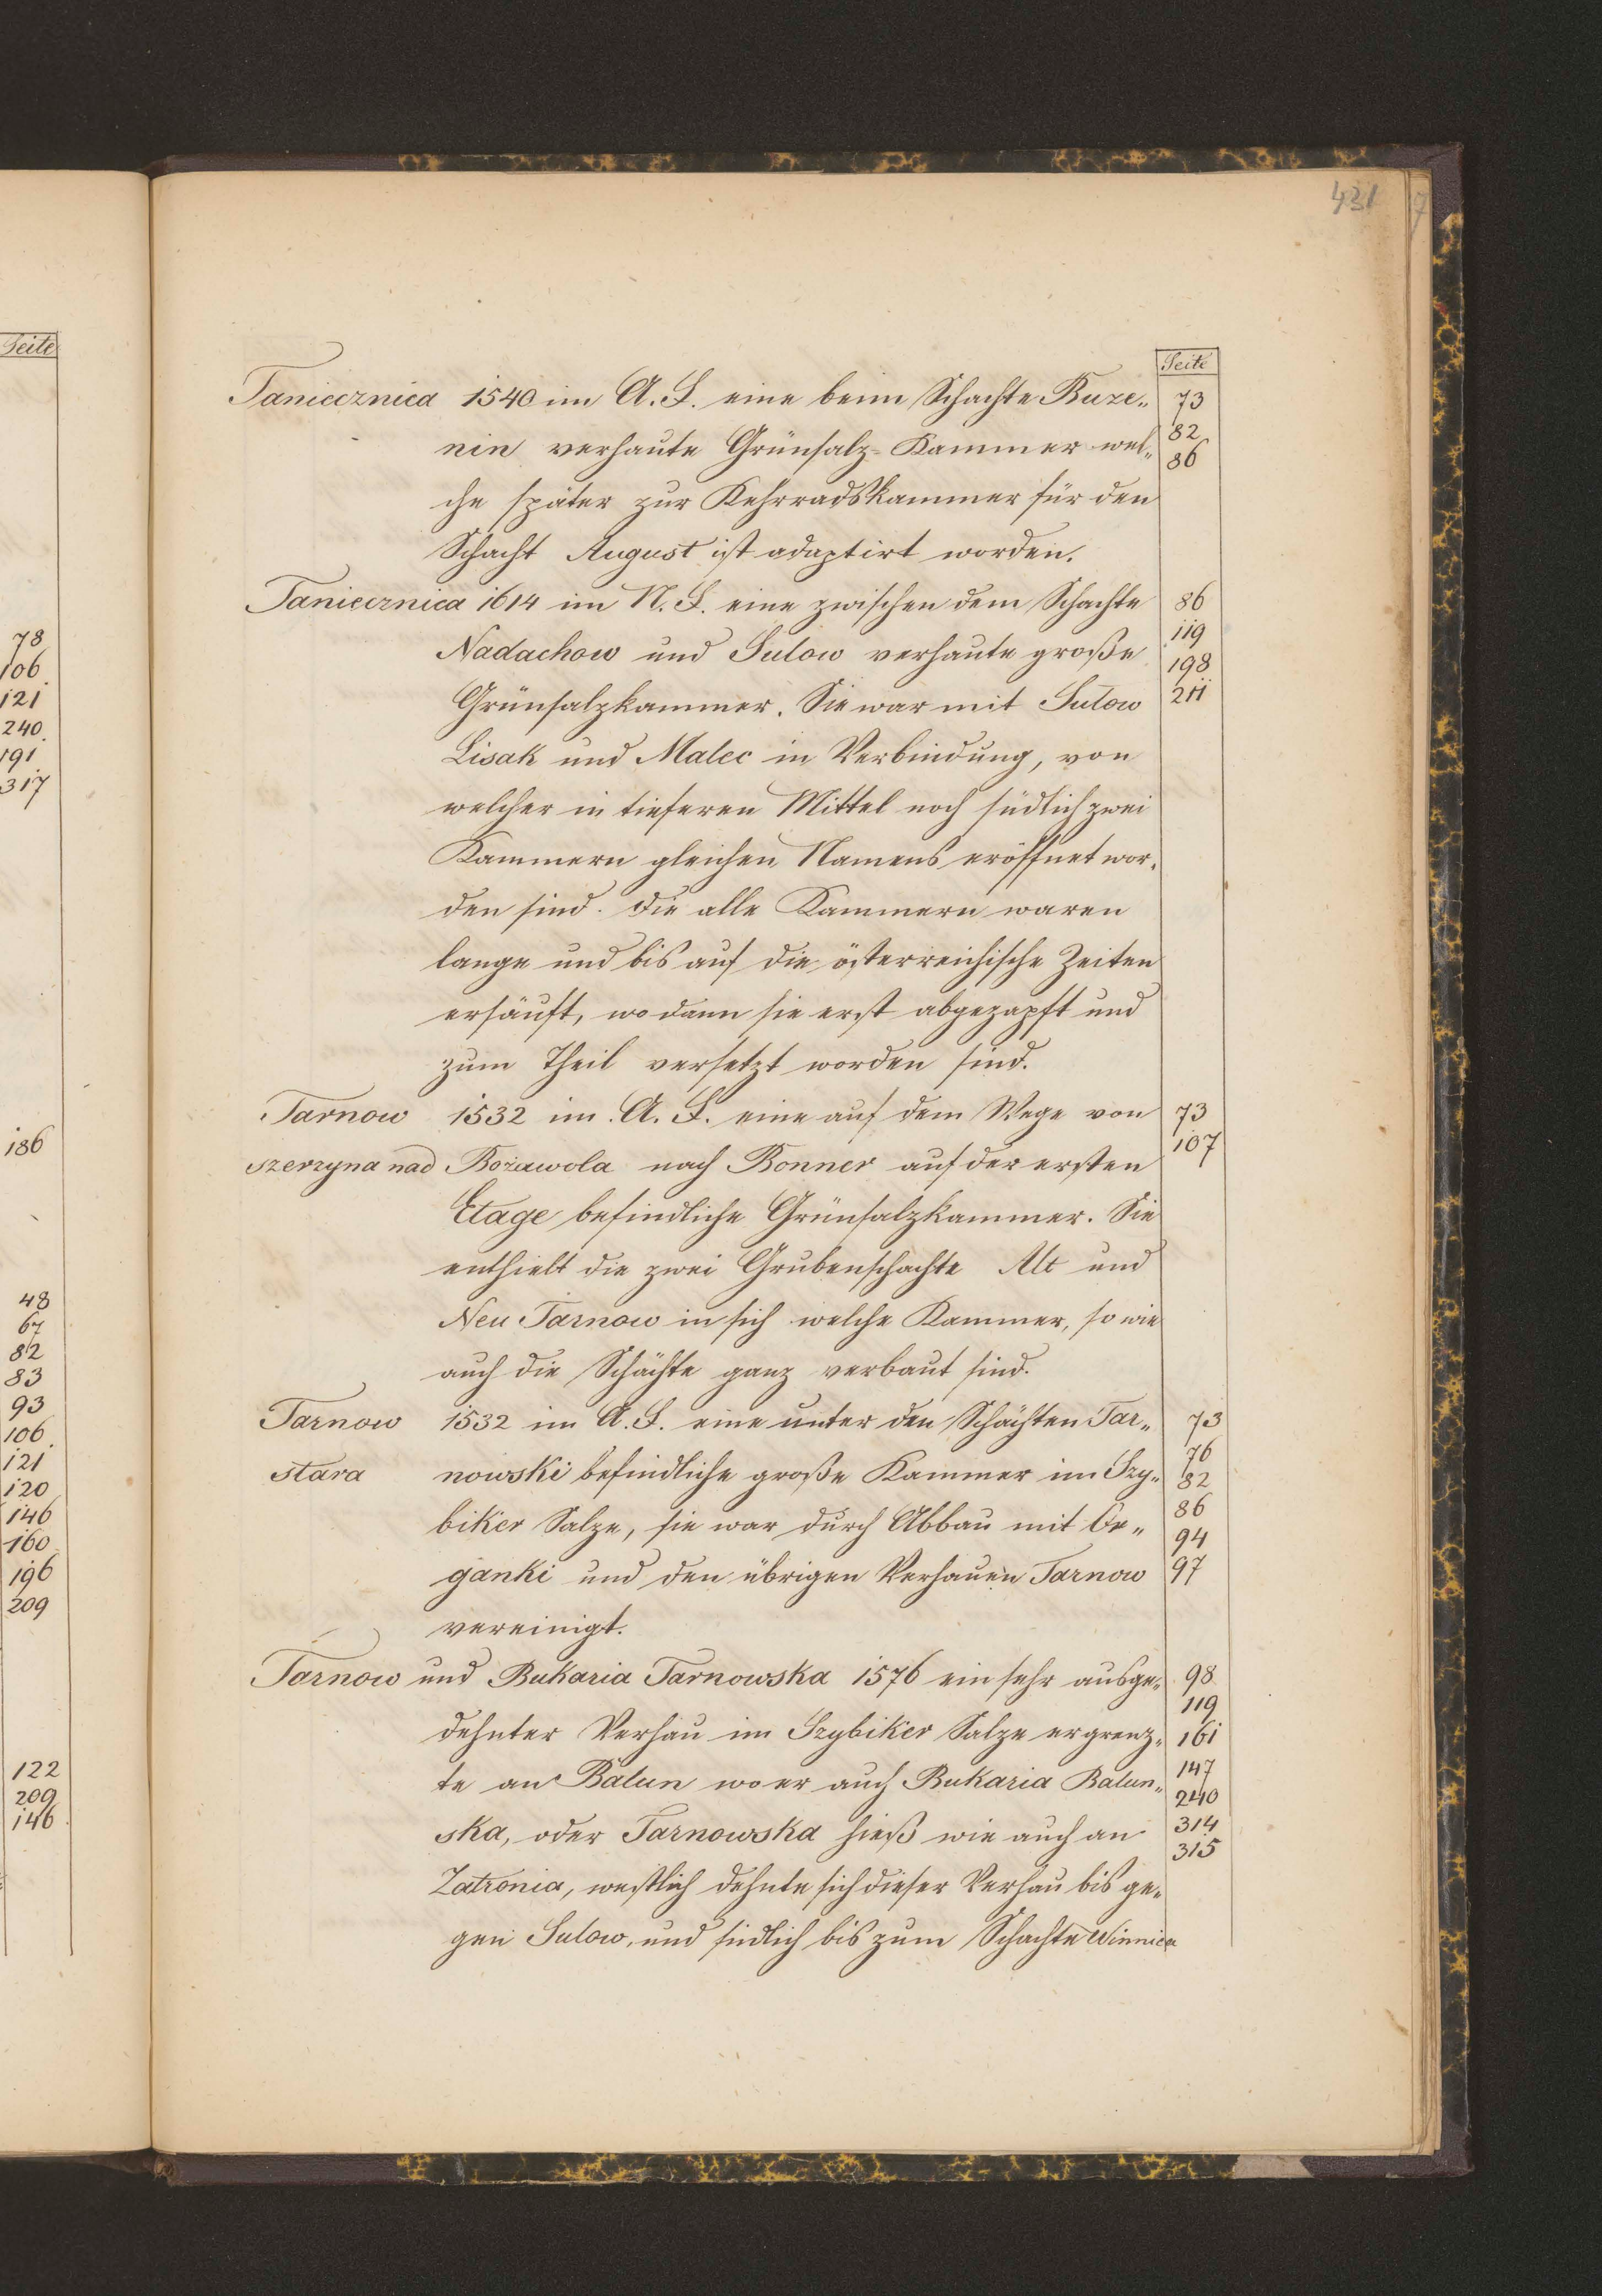 431
Seite
Taniecznica 1540 im A. F. eine beim Schachte Buze„ 73
82
nin verhaute Grünsalz-Kammer wel„ 86
che später zur Kehrradskammer für den
Schacht August ist adaptirt worden.
Taniecznica 1614 im N. F. eine zwischen dem Schachte 86
119
Nadachow und Sulow verhaute große 198
Grünsalzkammer. Sie war mit Sulow 211
Lisak und Malec in Verbindung, von
welcher in tieferen Mittel noch südlich zwei
Kammern gleichen Namens eröffnet wor„
den sind. Die alle Kammern waren
lange und bis auf die österreichische Zeiten
ersäuft, wo dann sie erst abgezapft und
zum Theil versetzt worden sind.
Tarnow 1532 im A. F. eine auf dem Wege von 73
szerzyna nad Bożawola nach Bonner auf der ersten 107
Etage befindliche Grünsalzkammer. Sie
enthielt die zwei Grubenschachte Alt und
Neu Tarnow in sich welche Kammer, so wie
auch die Schächte ganz verbaut sind.
Tarnow 1532 im A. F. eine unter den Schächten Tar„ 73
76
stara nowski befindliche große Kammer im Szy„ 82
biker Salze, sie war durch Abbau mit Or„ 86
94
ganki und den übrigen Verhauen Tarnow 97
vereinigt.
Tarnow und Bukaria Tarnowska 1576 ein sehr ausge„ 98
119
dehnter Verhau im Szybiker Salze ergrenz„ 161
te an Balun wo er auch Bukaria Balun„ 147
240
ska, oder Tarnowska hieß wie auch an 314
315
Zatronia, westlich dehnte sich dieser Verhau bis ge„
gen Sulow, und südlich bis zum Schachte Winnica
Seite
78
106
121
240
191
317
186
48
67
82
83
93
106
121
120
146
160
196
209
122
209
146